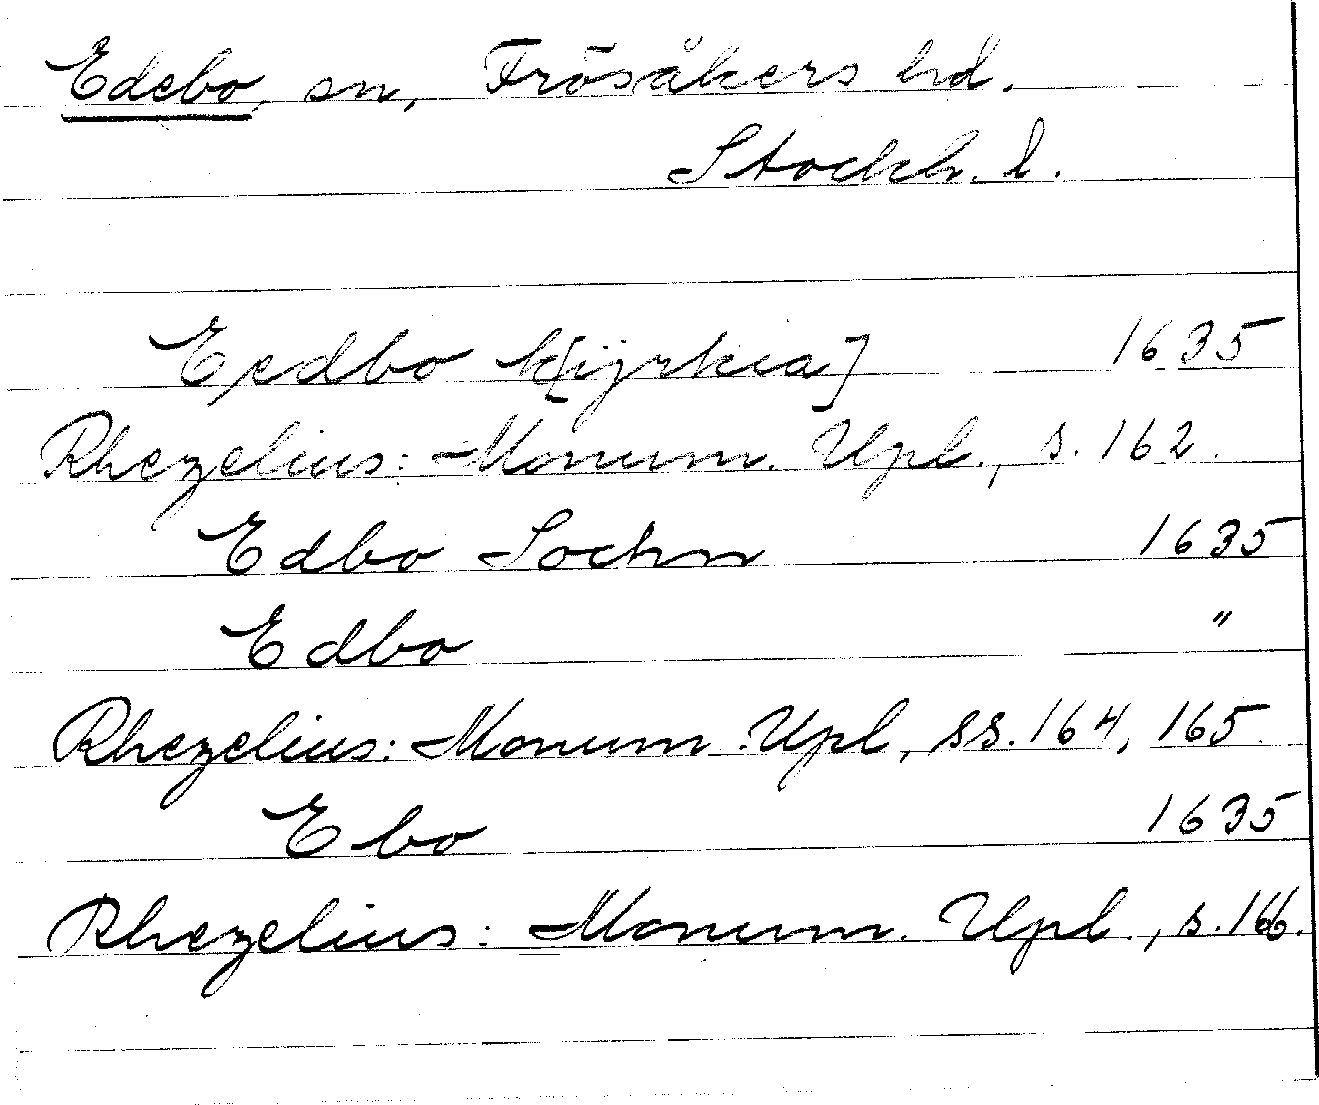 Edebo, sn, Frösåkers hd.
Stockh. l.
Eedbo k[ijrkia] 1635
Rhezelius: Monum. Upl., s. 162.
Edbo Sochn 1635
Edbo "
Rhezelius: Monum. Upl, ss. 164, 165.
Ebo 1635
Rhezelius: Monum. Upl., s. 166.